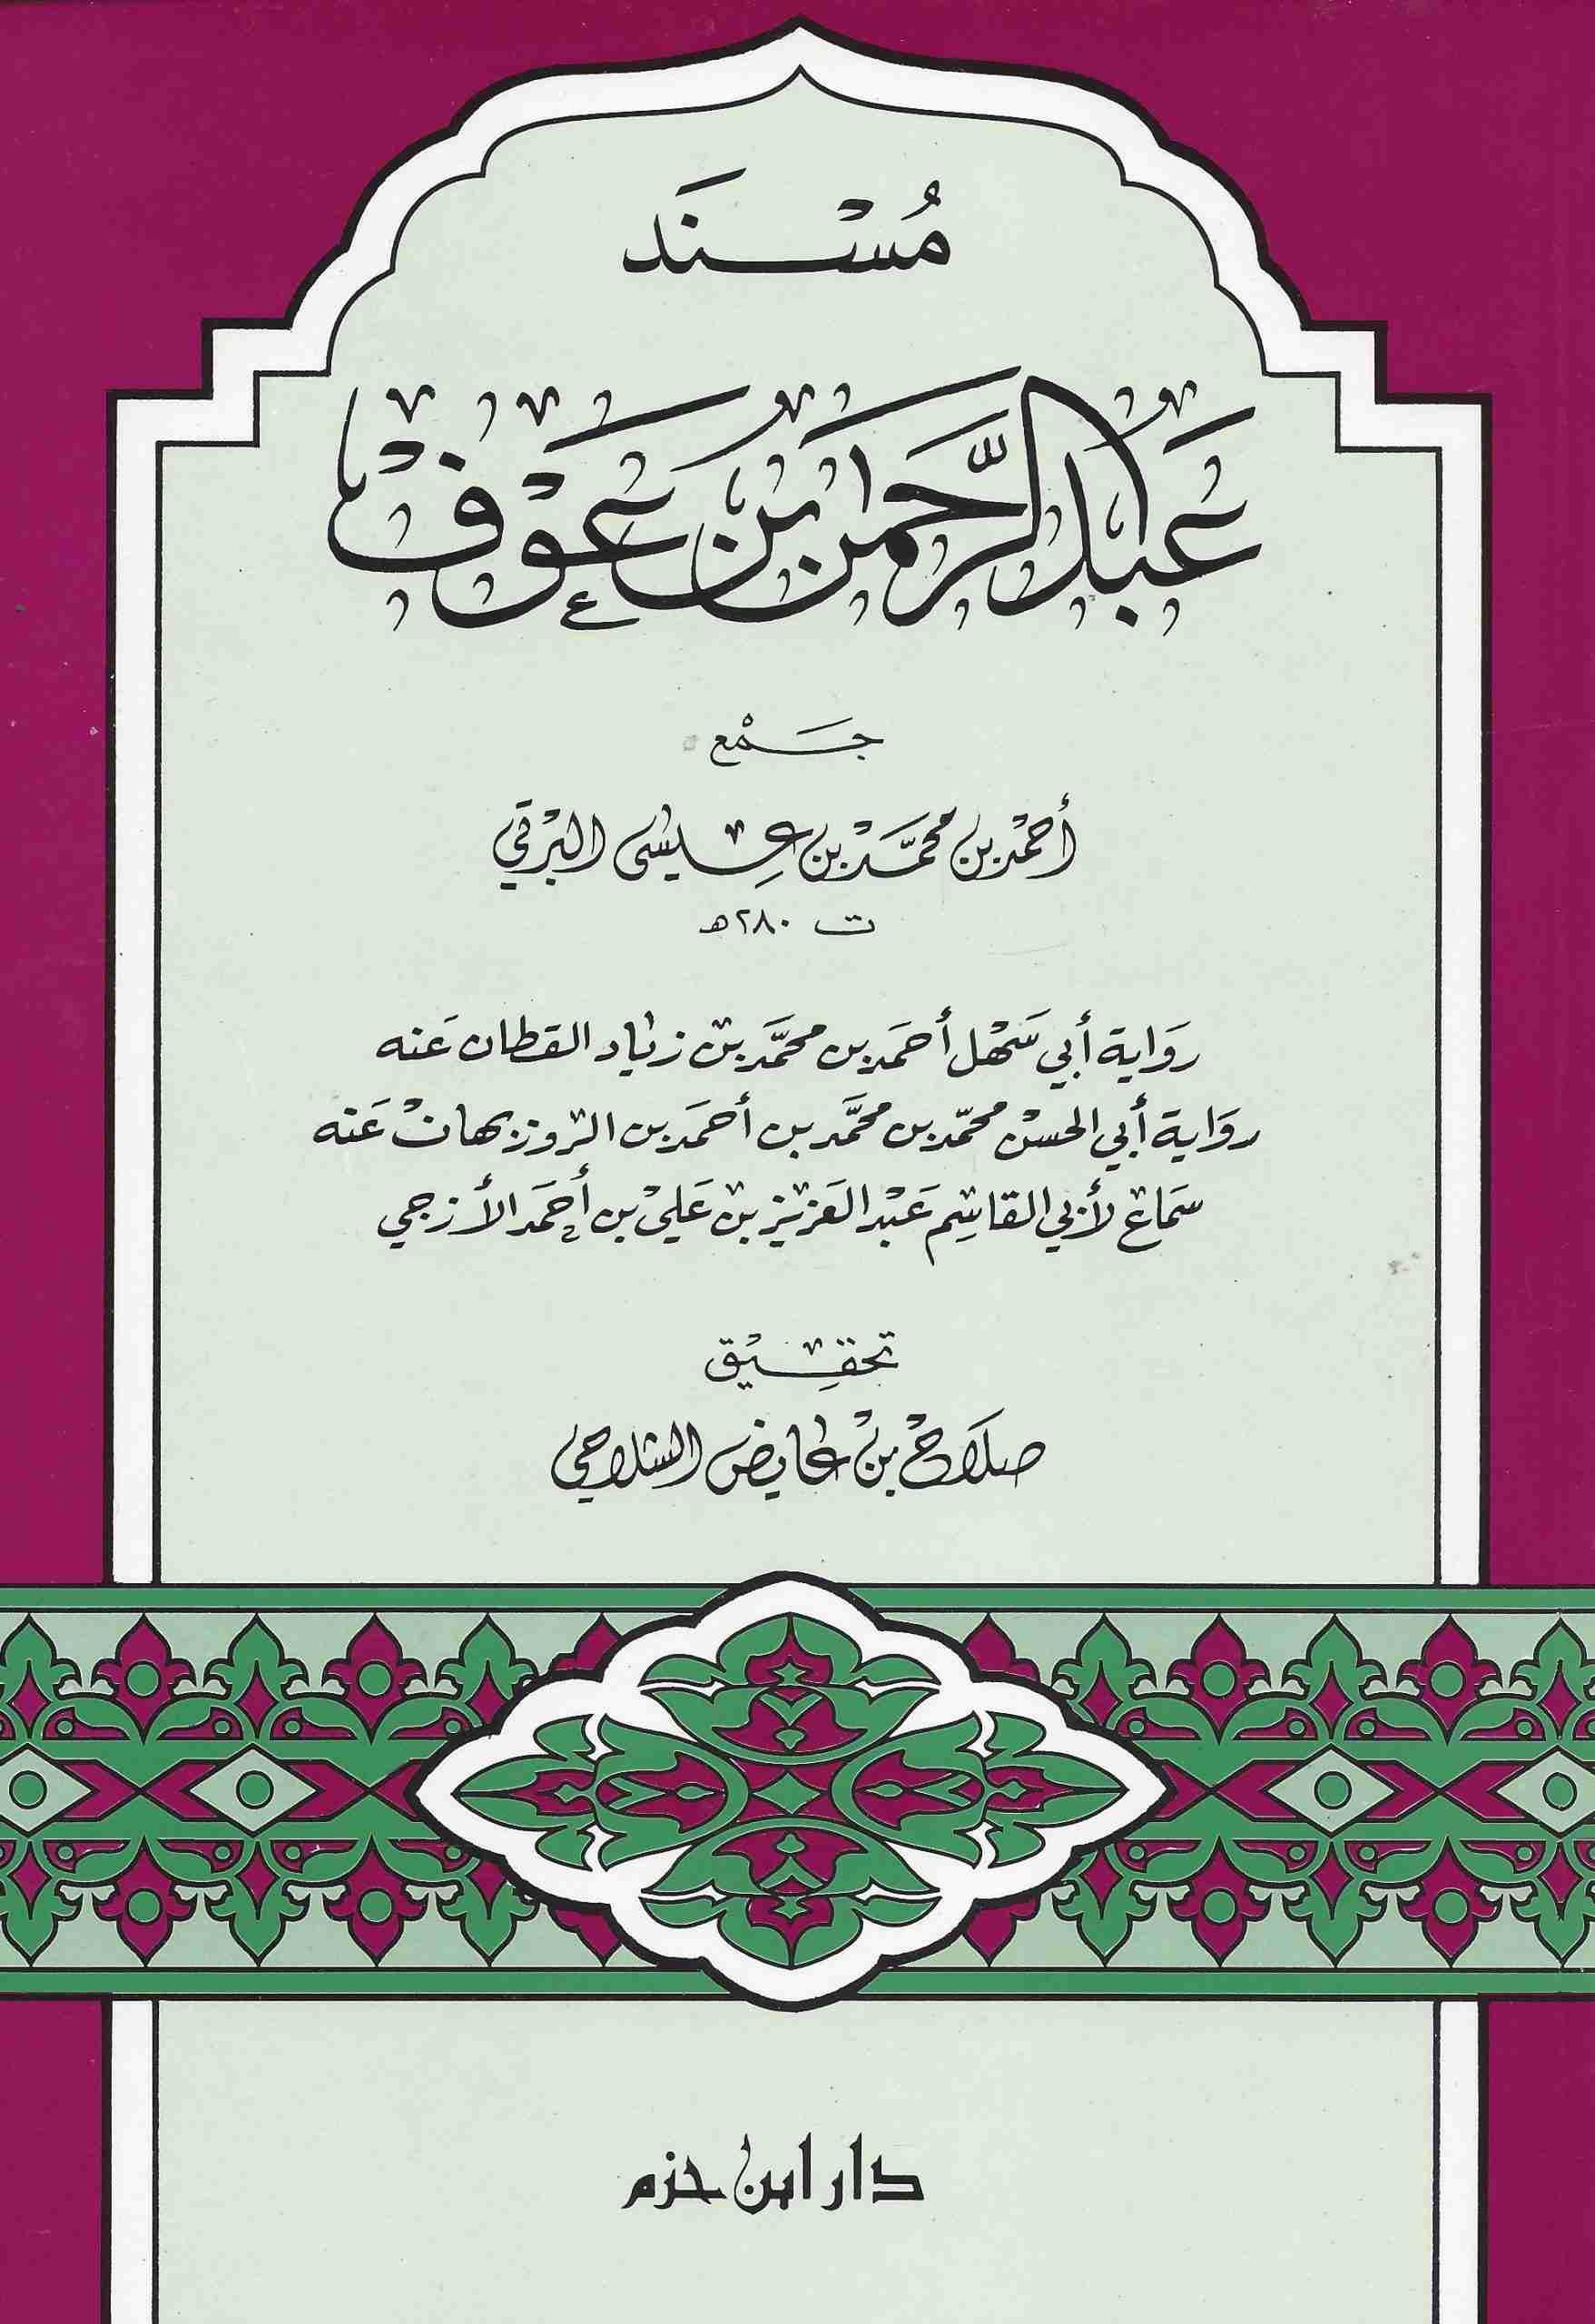 مُسْنَد
عَبد الرَّحمن بن عَوْف
جَمْع
أحمْد بن محمَّد بن عِيسى البرْتي
ت ٢٨٠هـ
رِوَاية أبي سَهْل أحمَد بن محمَّد بن زياد القطان عَنه
رِوَاية أبي الحسن محمّد بن محمَّد بن أحمَد بن الروزبهان عَنه
سَماع لأبي القاسِم عَبْد العَزيز بن عَلي بن أحمَد الأزجي
تحقِيق
صَلَاح بن عايض الشلاحي
دار ابن حزم